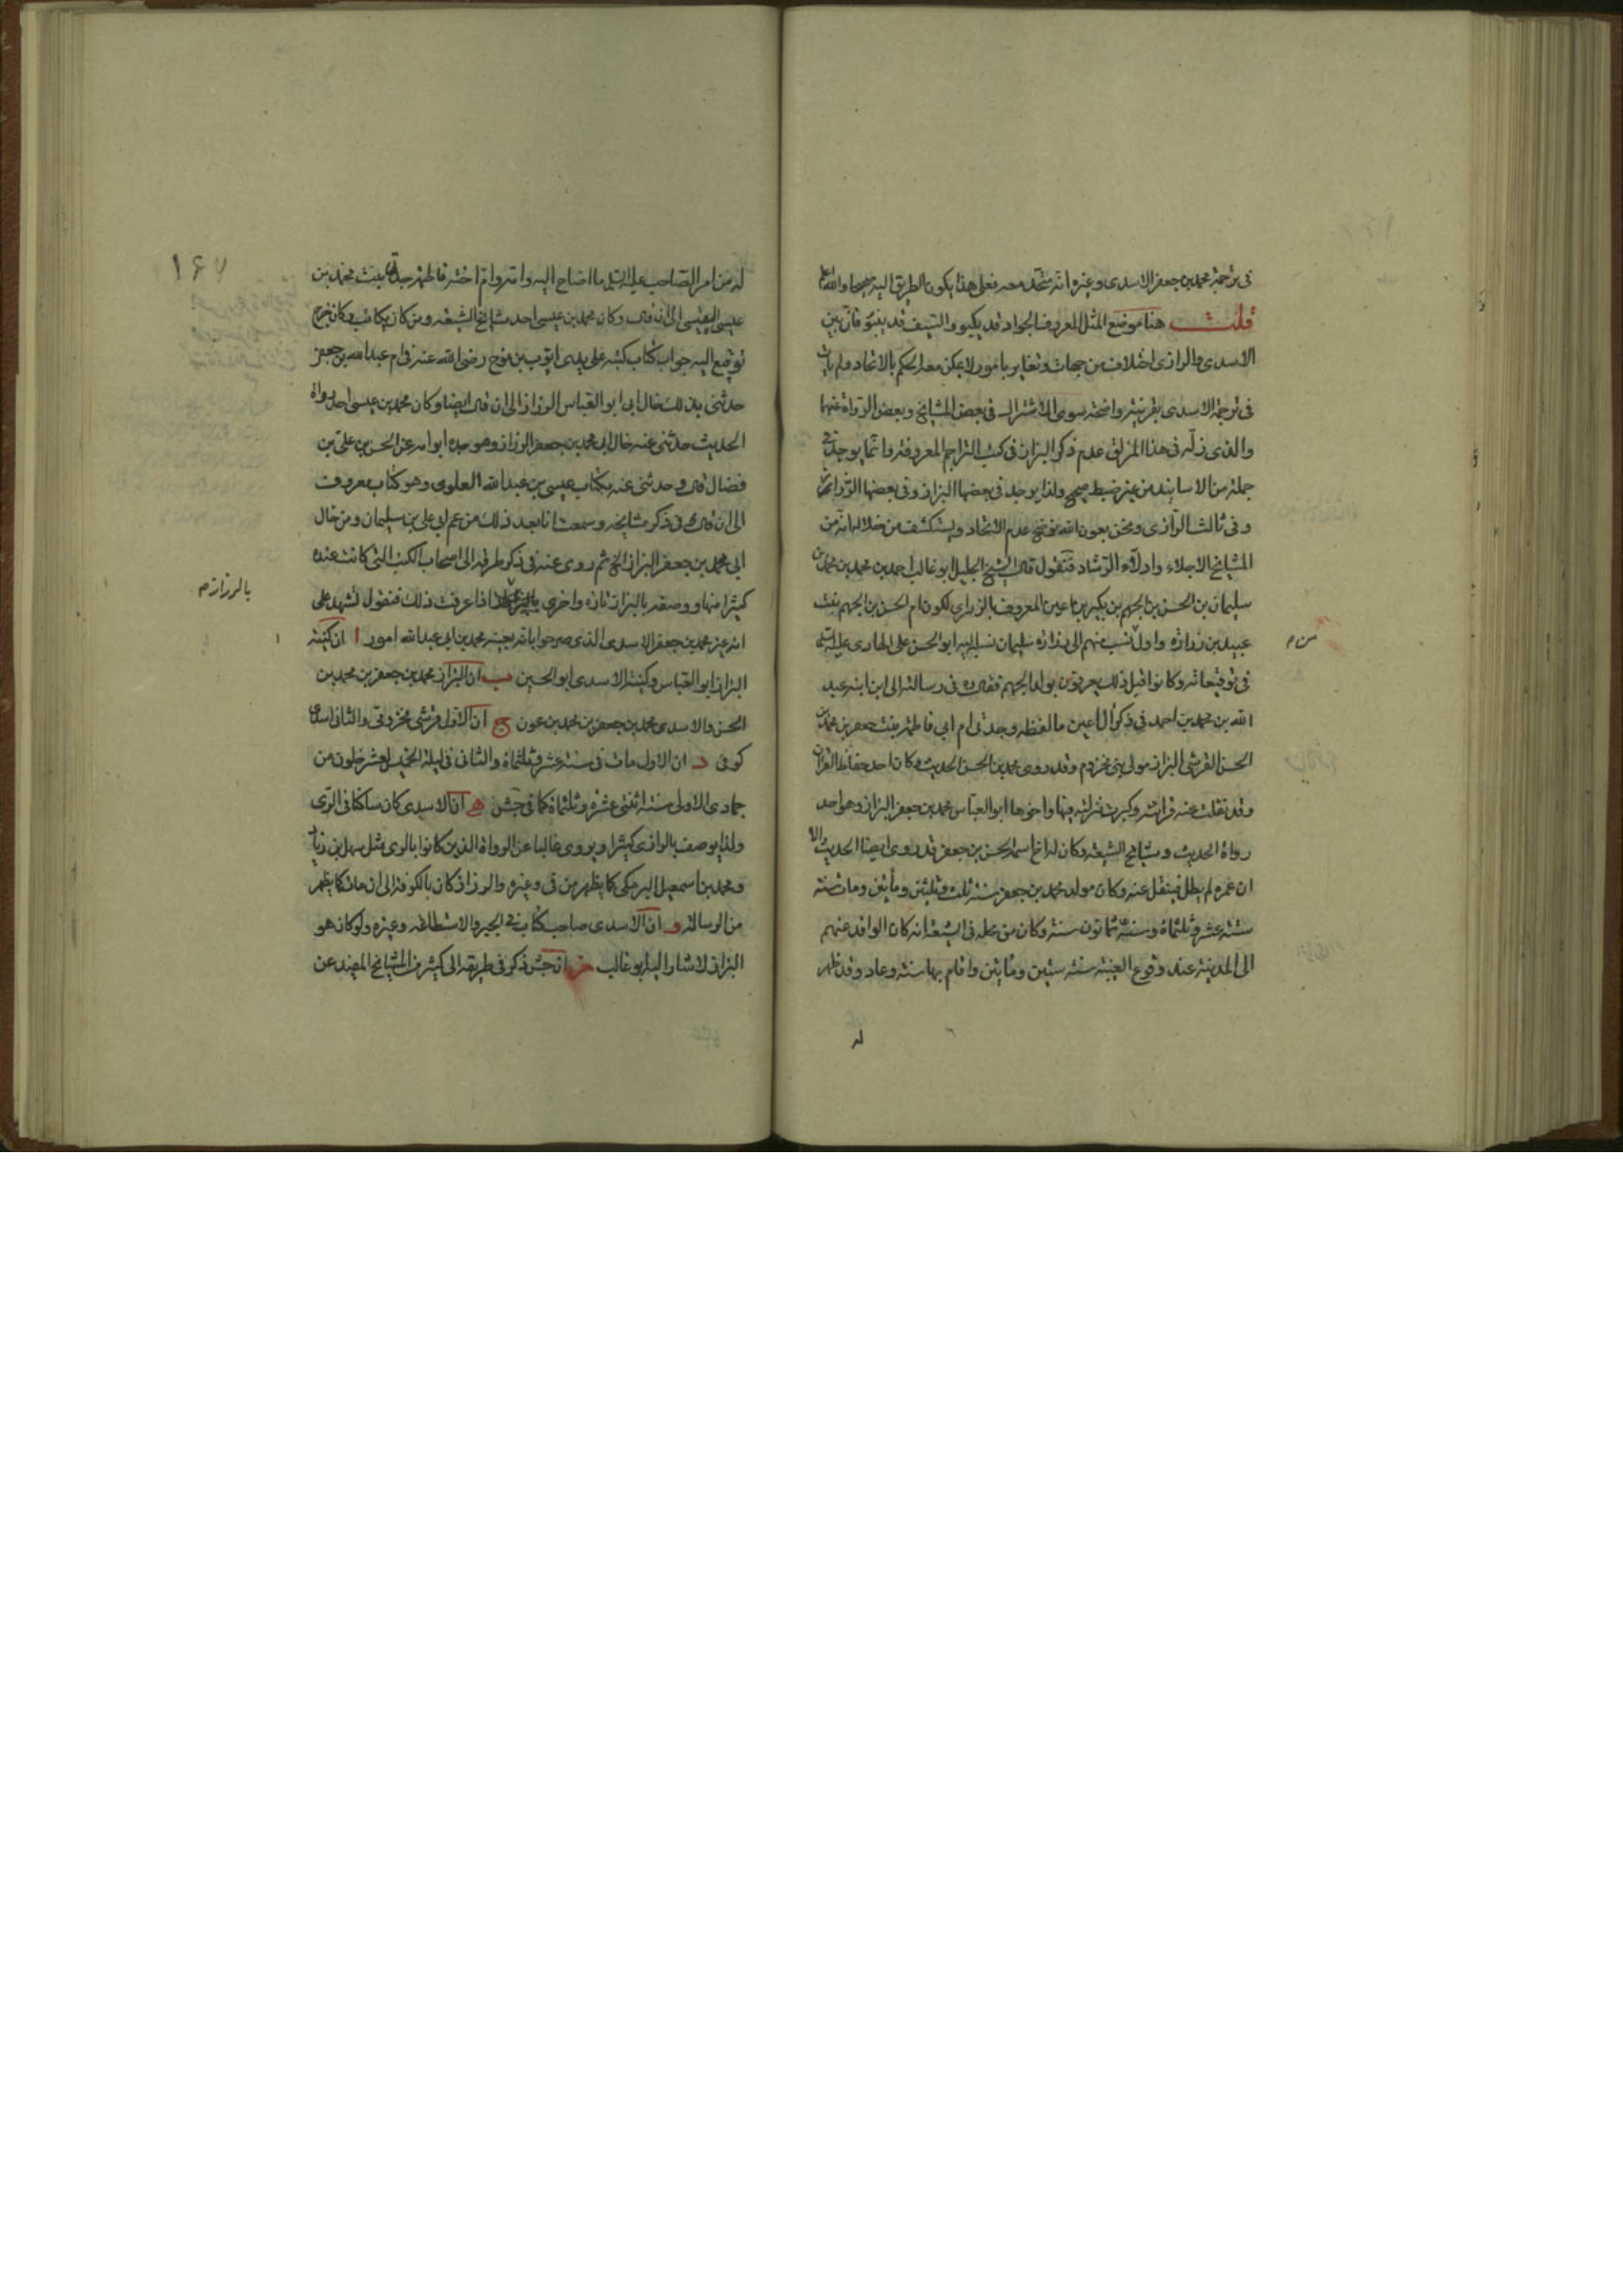 فى ترجمة محمد بن جعفر الاسدى وغيره انه متحد معه فعلى هذا يكون الطريق اليه صحيحا والله اعلم
قلت هنا موضع المثل المعروف الجواد قد يكبو والسيف قد ينبو فان بين
الاسدى والرازى اختلاف من جهات وتغاير بامور لا يمكن معه الحكم بالاتحاد ولم يات
فى ترجمة الاسدى بقرينة واضحة سوى الاشتراك فى بعض المشايخ وبعض الرواة عنهما
والذى زله فى هذا المزلق عدم ذكر البزاز فى كتب التراجم المعروفة وانما يوجد فى
جملة من الاسانيد من غير ضبط صحيح ولذا يوجد فى بعضها البزاز وفى بعضها الرزاز
وفى ثالث الرازى ونحن بعون الله نوضح عدم الاتحاد ويستكشف من خلاله انه من
المشايخ الاجلاء وادلاء الرشاد فنقول قال الشيخ الجليل ابو غالب احمد بن محمد بن محمد بن
سليمان بن الحسن بن الجهم بن بكير بن اعين المعروف بالزرارى لكون ام الحسن بن الجهم بنت
عبيد بن زرارة واول من نسب منهم الى زرارة سليمان نسبه اليه ابو الحسن على الهادى عليه السلم
فى توقيعاته وكانوا قبل ذلك يعرفون بولد الجهم فقال ره فى رسالته الى ابن ابنه عبد
الله بن محمد بن احمد فى ذكر آل اعين ما لفظه وجدتى ام ابى فاطمة بنت جعفر بن محمد بن
الحسن القرشى البزاز مولى بنى مخزوم وقد روى محمد بن الحسن الحديث وكان احد حفاظ القران
وقد نقلت عنه قراءته وكبرت منزلته فيها واخوها ابو العباس محمد بن جعفر البزاز وهو احد
رواة الحديث ومشايخ الشيعة وكان له اخ اسمه الحسن بن جعفر قد روى ايضا الحديث الا
ان عمره لم يطل فينقل عنه وكان مولد محمد بن جعفر سنة ثلث وثلثين ومأتين ومات سنة
ستة عشر وثلثمائة وسنه ثمانون سنة وكان من محله فى الشيعة انه كان الوافد عنهم
الى المدينة عند وقوع الغيبة سنة ستين ومأتين واقام بها سنة وعاد وقد ظهر
له
من م
١٤٧
له من امر الصاحب عليه السلم ما احتاج اليه وامه وام اخته فاطمة جدتى بنت محمد بن
عيسى القيسى الى ان قال وكان محمد بن عيسى احد مشايخ الشيعة ومن كان يكاتب وكان خرج
توقيع اليه جواب كتاب كتبه على يدى ايوب بن نوح رضى الله عنه فى ام عبد الله بن جعفر
حدثنى بذلك خال ابى ابو العباس الرزاز الى ان قال ايضا وكان محمد بن عيسى احد رواة
الحديث حدثنى عنه خال ابى محمد بن جعفر الرزاز وهو جده ابو امه عن الحسن بن على بن
فضال قال وحدثنى عنه بكتاب عيسى بن عبد الله العلوى وهو كتاب معروف
الى ان قال فى ذكر مشايخه وسمعت انا بعد ذلك من عم ابى على بن سليمان ومن خال
ابى محمد بن جعفر البزاز الخ ثم روى عنه فى ذكر طرقه الى اصحاب الكتب التى كانت عنده
كثيرا منها ووصفه بالبزاز تارة واخرى اذا عرفت ذلك فنقول نشهد على
انه غير محمد بن جعفر الاسدى الذى صرحوا بانه بعينه محمد بن ابى عبد الله امور ا ان كنية
البزاز ابو العباس وكنية الاسدى ابو الحسين ب ان البزاز محمد بن جعفر بن محمد بن
الحسن والاسدى محمد بن جعفر بن محمد بن عون ج ان الاول قرشى مخزومى والثانى اسدى
كوفى د ان الاول مات فى سنة عشر وثلثمائة والثانى فى ليلة الخميس لعشر خلون من
جمادى الاولى سنة اثنتى عشرة وثلثمائة كما فى جش ه ان الاسدى كان ساكنا فى الرى
ولذا يوصف بالرازى كثيرا ويروى غالبا عن الرواة الذين كانوا بالرى مثل سهل بن زياد
ومحمد بن اسمعيل البرمكى كما يظهر من قى وغيره والرزاز كان بالكوفة الى ان مات كما يظهر
من الرسالة و ان الاسدى صاحب كتاب فى الجبر والاستطاعة وغيره ولو كان هو
البزاز لاشار اليه ابو غالب ز ان جش ذكر فى طريقه الى كثير من المشايخ المفيد عن
بالرزاز م